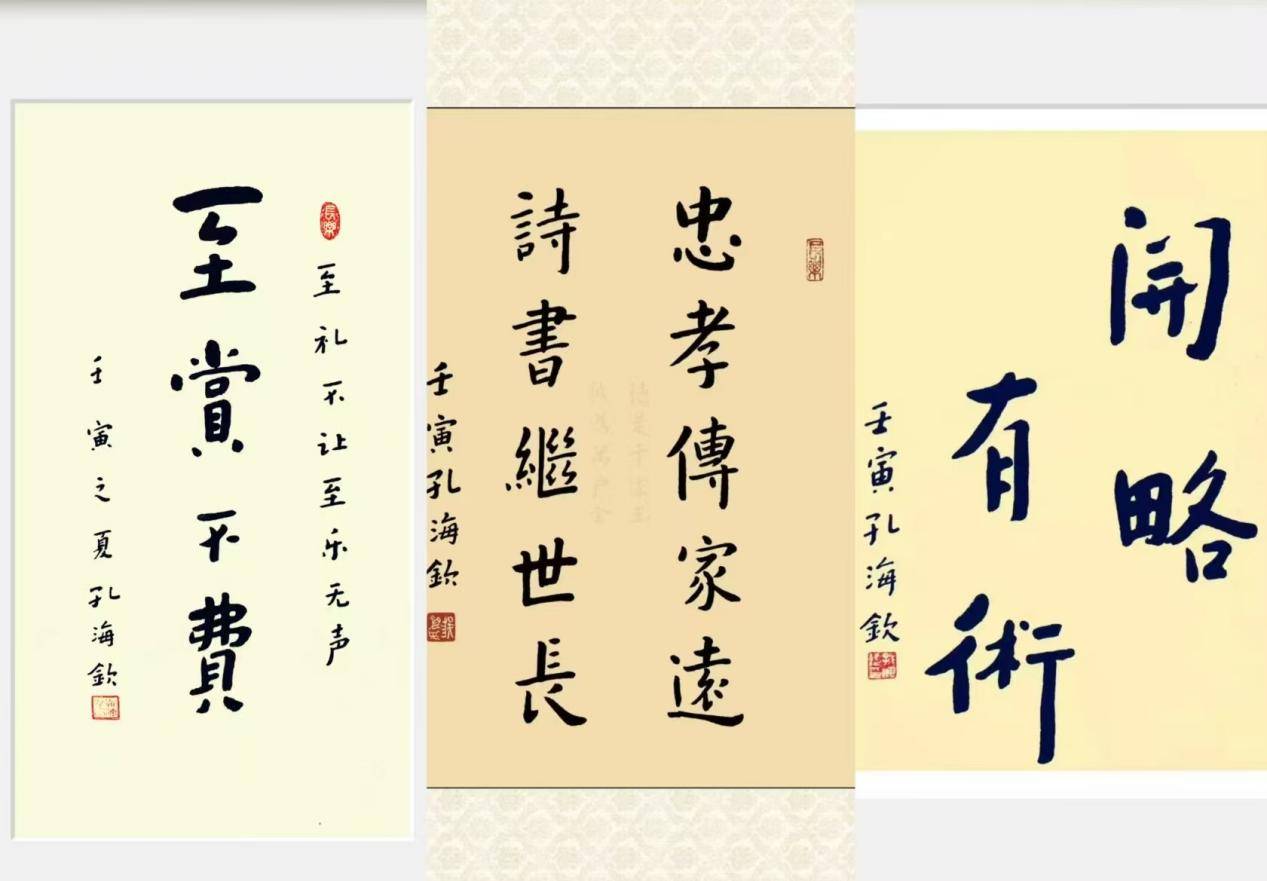 至礼不让至乐无声
至賞不費
壬寅之夏孔海欽
忠孝傳家遠
詩書繼世長
壬寅孔海欽
開略
有術
壬寅孔海欽